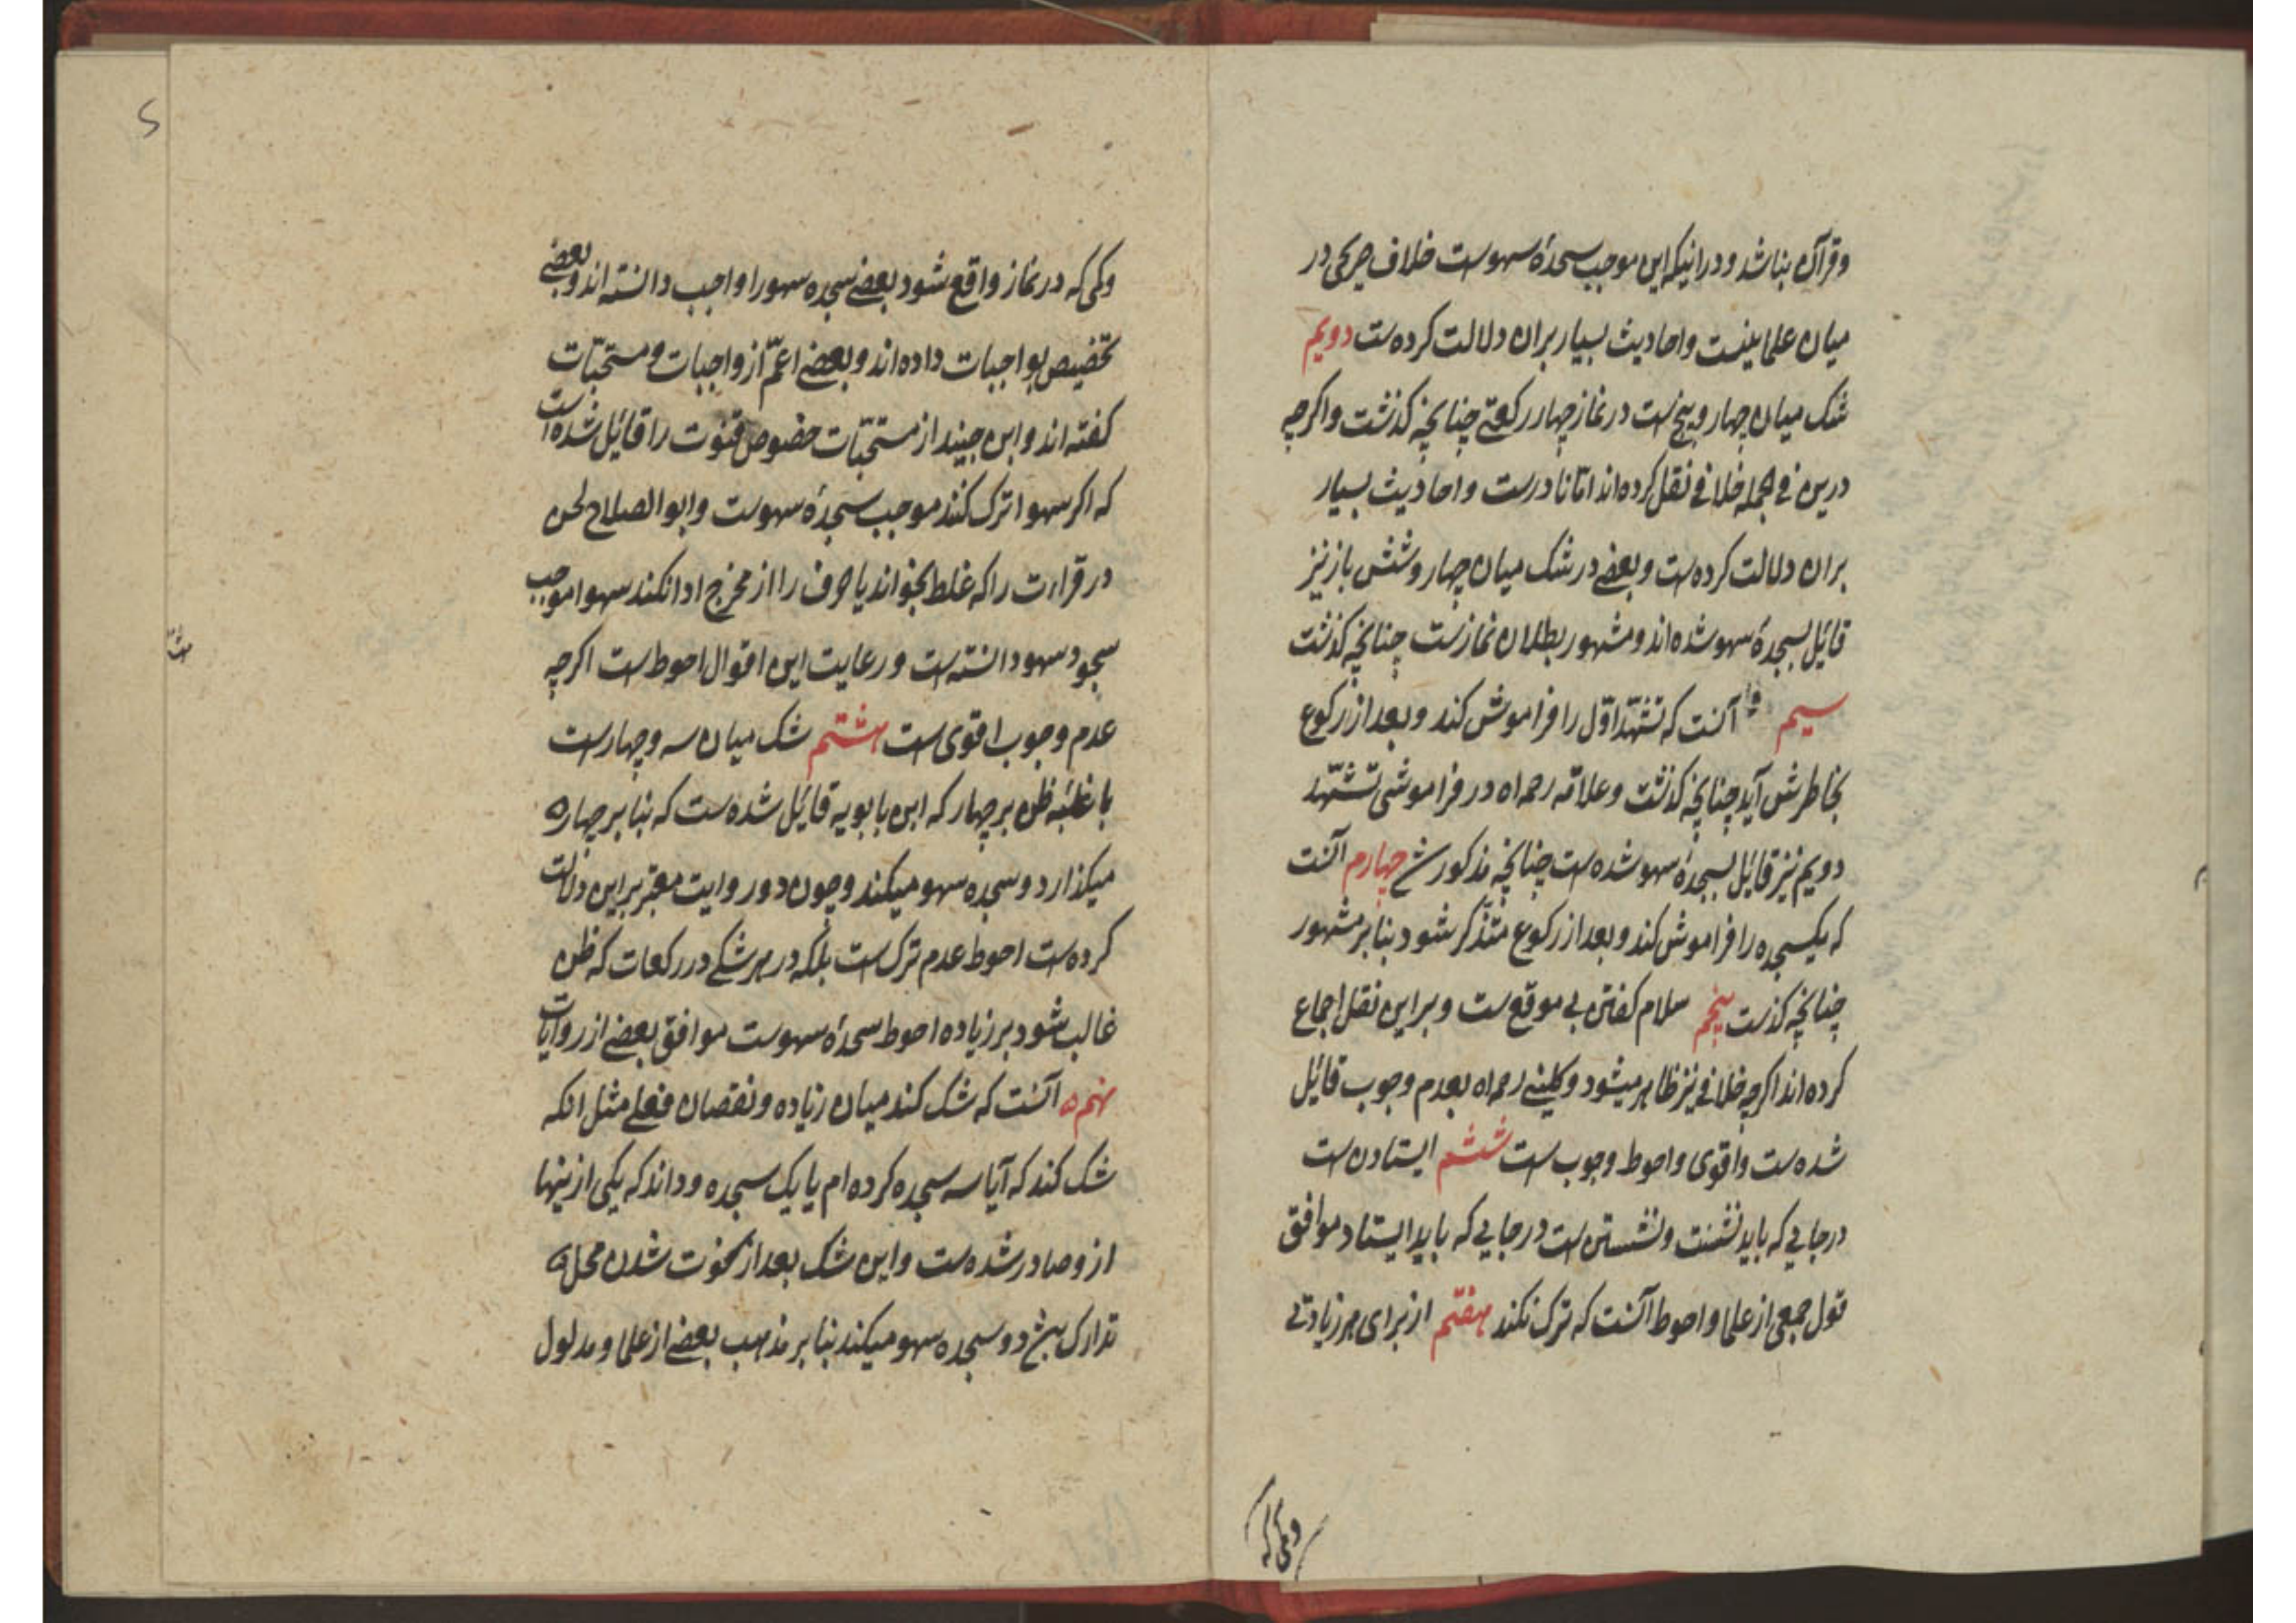 وقرآن بناشد ودرانیکه این موجب سجدهٔ سهوست خلاف صریحی در
میان علما نیست واحادیث بسیار بران دلالت کرده‌ست دویم
شک میان چهار وپنج ست در نماز چهار رکعتی چنانچه کذشت واکرچه
درین فی الجمله خلافی نقل کرده اند اما نادرست واحادیث بسیار
بران دلالت کرده‌ست وبعضی در شک میان چهار وشش باز نیز
قائل بسجدهٔ سهو شده اند ومشهور بطلان نمازست چنانچه کذشت
سیم آنست که تشهّد اوّل را فراموش کند وبعد از رکوع
بخاطرش آید چنانچه کذشت وعلامّه رحمه اه در فراموشی تشهّد
دویم نیز قائل بسجدهٔ سهو شده ست چنانچه مذکور ش چهارم آنست
که یکسجده را فراموش کند وبعد از رکوع متذکّر شود بنا بر مشهور
چنانچه کذست پنجم سلام کفتن بی موقع ست وبر این نقل اجماع
کرده اند اکرچه خلافی نیز ظاهر میشود وکلینی رحمه اه بعدم وجوب قائل
شده ست واقوی واحوط وجوب ست ششم ایستادن ست
در جایی که باید نشست ونشستن ست در جایی که باید ایستاد موافق
قول جمعی از علما واحوط آنست که ترک نکند هفتم از برای هر زیادتی
وکمی که
وکمی که در نماز واقع شود بعضی سجده سهو را واجب دانسته اند وبعضی
تخصیص بواجبات داده اند وبعضی اعمّ از واجبات ومستحبّات
کفته اند وابن جنید از مستحبّات خصوص قنوت را قائل شده است
که اکر سهوا ترک کند موجب سجدهٔ سهوست وابو الصلاح لحن
در قراءت را که غلط بخواند یا حرف را از مخرج ادا نکند سهوا موجب
سجود سهو دانسته ست ورعایت این اقوال احوط ست اکرچه
عدم وجوب اقوی ست هشتم شک میان سه وچهارست
با غلبهٔ ظن بر چهار که ابن بابویه قائل شده ست که بنا بر چهار
میکذارد وسجده سهو میکند وچون دو روایت معتبر بر این دلالت
کرده ست احوط عدم ترک ست بلکه در هر شکی در رکعات که ظن
غالب شود بر زیاده احوط سجدهٔ سهوست موافق بعضی از روایات
نهم آنست که شک کند میان زیاده ونقصان فعلی مثل انکه
شک کند که آیا سه سجده کرده ام یا یک سجده وداند که یکی از ینها
از وصادر شده ست واین شک بعد از فوت شدن محل
تدارک بش دو سجده سهو میکند بنا بر مذهب بعضی از علما ومدلول